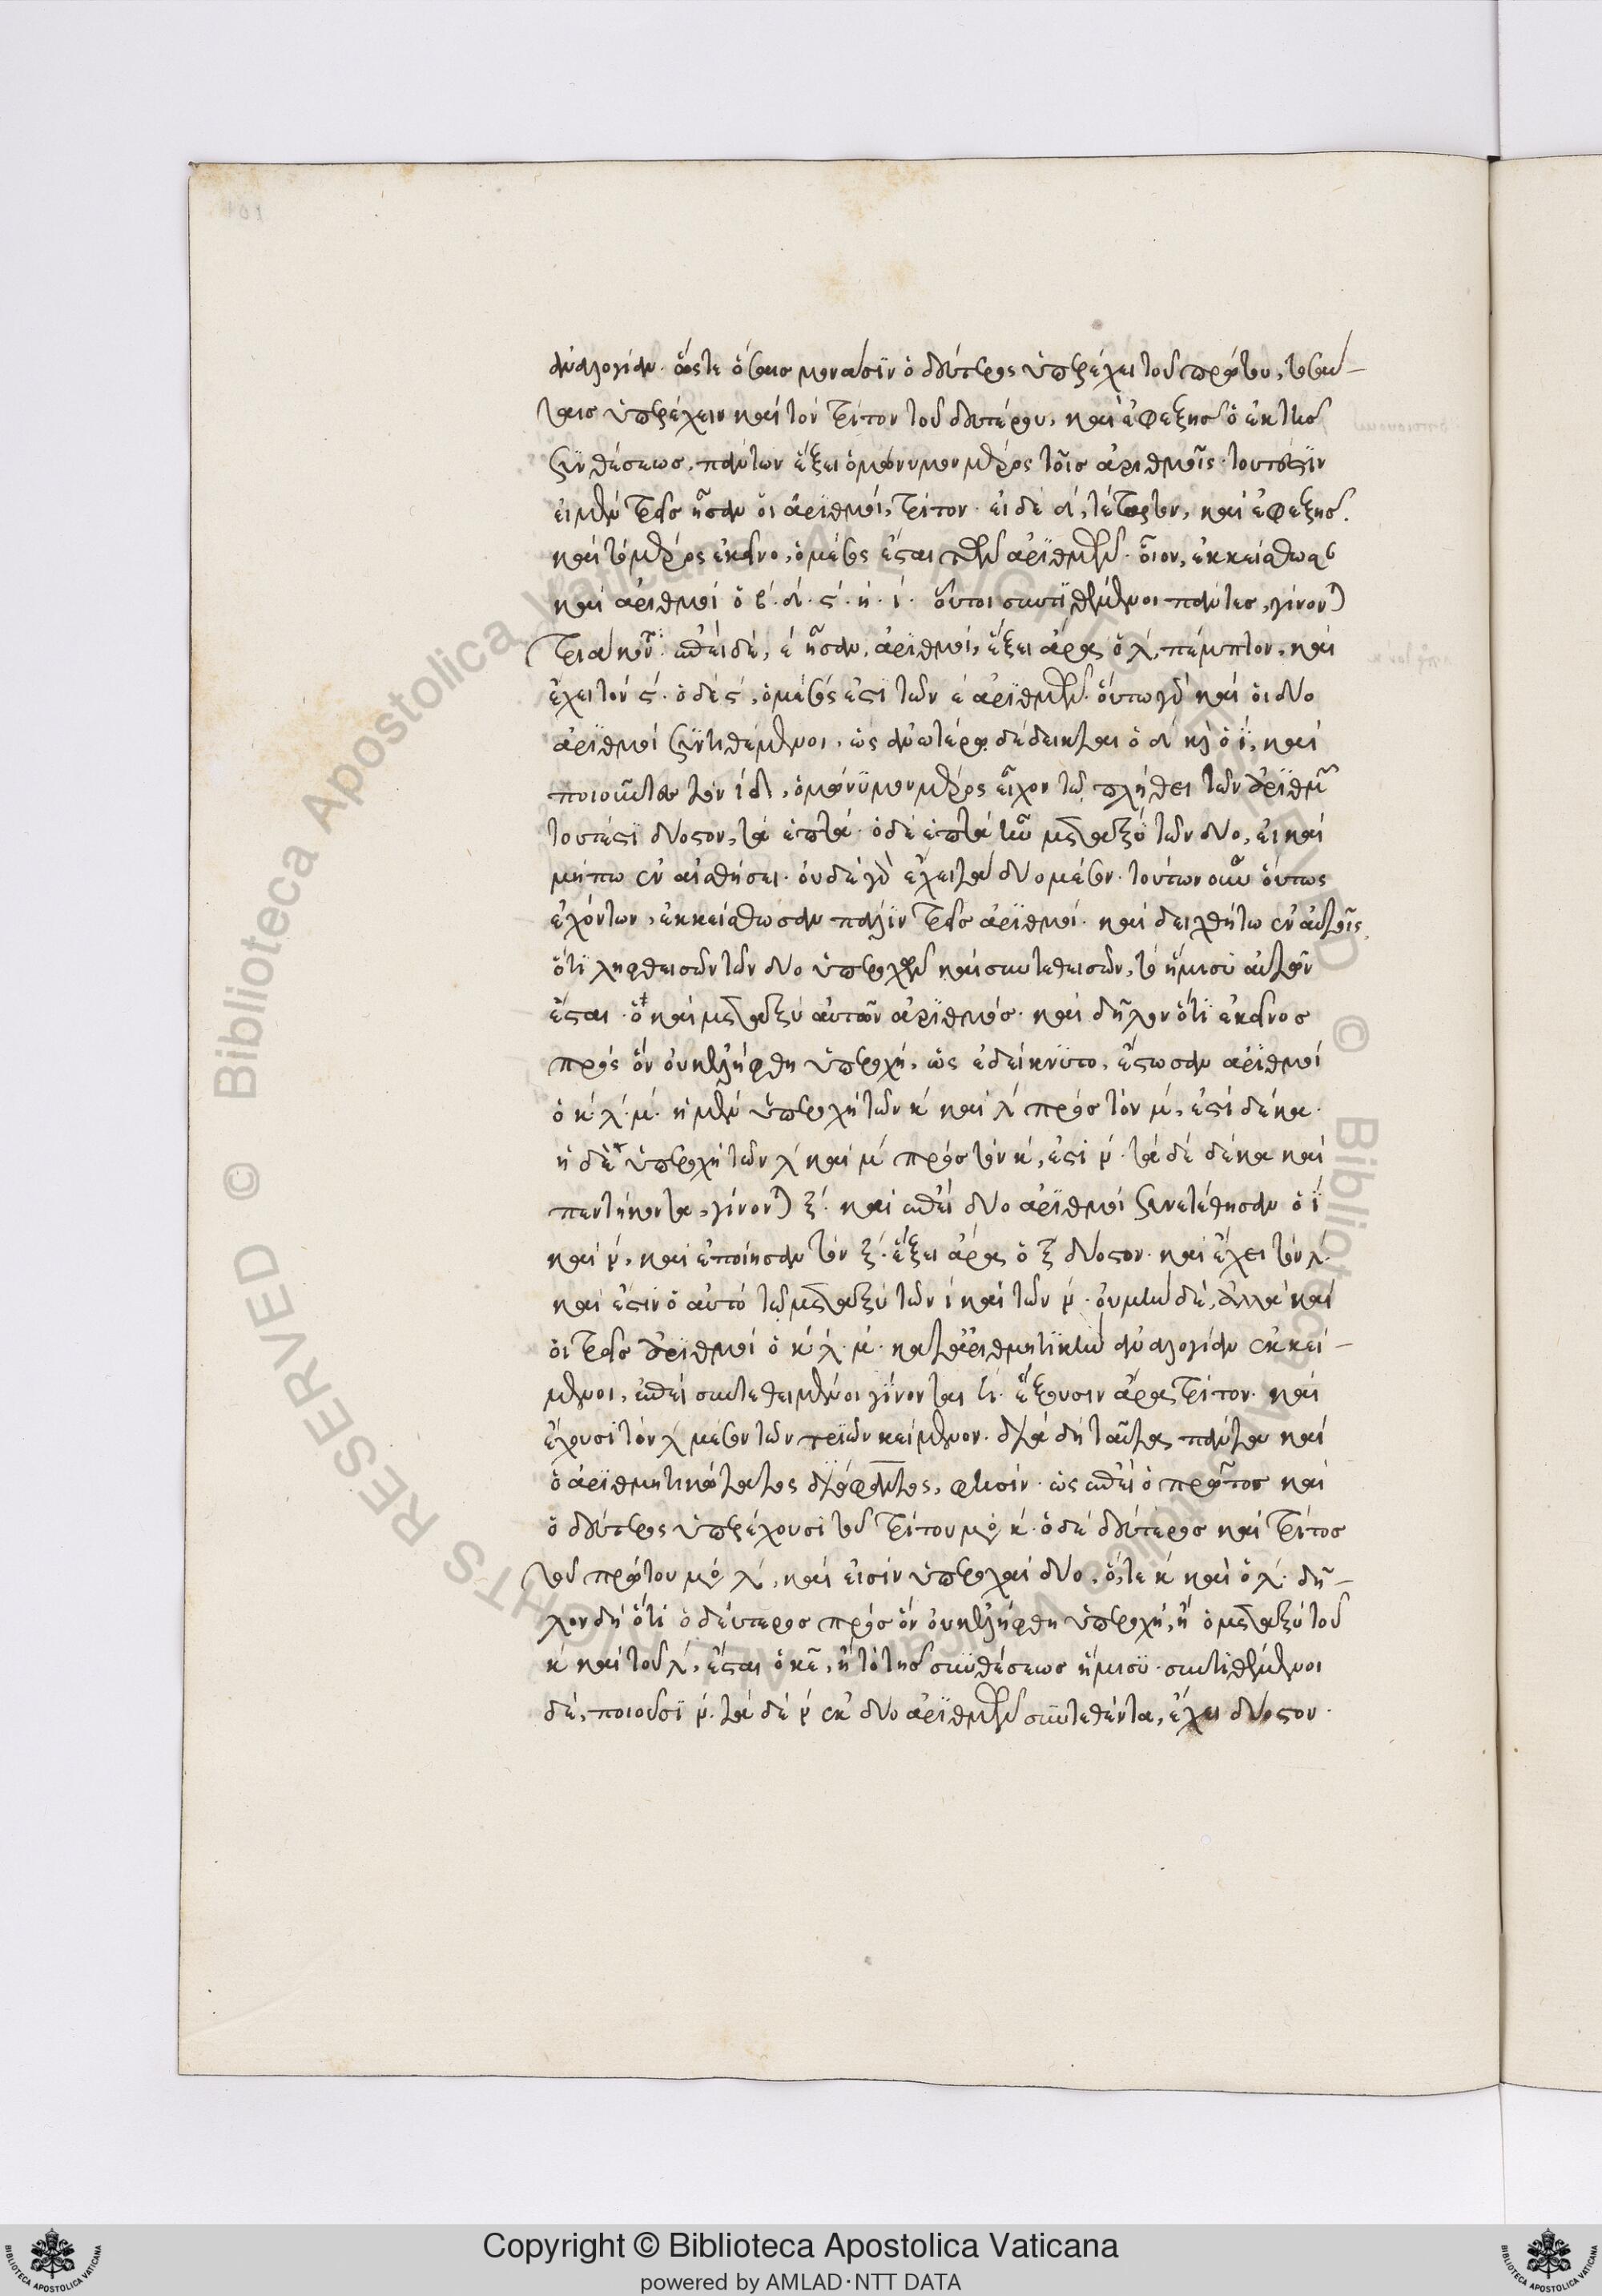 101
ἀναλογίαν. ὥστε ὅσαις μονάσιν ὁ δεύτερος ὑπερέχει τοῦ πρώτου, τοσαύ-
ταις ὑπερέχειν καὶ τὸν τρίτον τοῦ δευτέρου, καὶ ἐφεξῆς ὁ ἐκ τῆς
συνθέσεως πάντων ἕξει ὁμώνυμον μέρος τοῖς ἀριθμοῖς. τουτέστιν
εἰ μὲν τρεῖς ἦσαν οἱ ἀριθμοί, τρίτον. εἰ δὲ δ, τέταρτον, καὶ ἐφεξῆς.
καὶ τὸ μέρος ἐκεῖνο, ὁ μέσος ἔσται τῶν ἀριθμῶν. οἷον, ἐκκείσθωσαν
καὶ ἀριθμοὶ ὁ β. δ. ς. η. ι. οὗτοι συντιθέμενοι πάντες, γίνονται
τριάκοντα. ἐπεὶ δέ, ε ἦσαν, ἀριθμοί, ἕξει ἄρα ὁ λ, πέμπτον, καὶ
ἔχει τὸν ς. ὁ δὲ ς, ὁ μέσός ἐστι τῶν ε ἀριθμῶν. οὕτω γὰρ καὶ οἱ δύο
ἀριθμοὶ συντιθέμενοι, ὡς ἀνωτέρω δέδεικται ὁ δ καὶ ὁ ι, καὶ
ποιοῦντα τὸν ιδ, ὁμώνυμον μέρος εἶχον τῷ πλήθει τῶν ἀριθμῶν
τουτέστι δυοστόν, τὰ ἑπτά. ὁ δὲ ἑπτὰ ἦν μεταξὺ τῶν δύο, εἰ καὶ
μήπω ἐν αἰσθήσει. οὐδὲ γὰρ ἔχει τὰ δύο μέσον. τούτων οὖν οὕτως
ἐχόντων, ἐκκείσθωσαν πάλιν τρεῖς ἀριθμοί. καὶ δειχθήτω ἐν αὐτοῖς,
ὅτι ληφθεισῶν τῶν δύο ὑπεροχῶν καὶ συντεθεισῶν, τὸ ἥμισυ αὐτῶν
ἔσται ὁ καὶ μεταξὺ αὐτῶν ἀριθμός. καὶ δῆλον ὅτι ἐκεῖνος
πρὸς ὃν οὐκ ἐλήφθη ὑπεροχή, ὡς ἐδείκνυτο, ἔστωσαν ἀριθμοὶ
ὁ κ. λ. μ. ἡ μὲν ὑπεροχὴ τῶν κ καὶ λ πρὸς τὸν μ, ἐστὶ δέκα.
ἡ δὲ ὑπεροχὴ τῶν λ καὶ μ πρὸς τὸν κ, ἐστὶ ν. τὰ δὲ δέκα καὶ
πεντήκοντα, γίνονται ξ. καὶ ἐπεὶ δύο ἀριθμοὶ συνετέθησαν ὁ ι
καὶ ν, καὶ ἐποίησαν τὸν ξ. ἕξει ἄρα ὁ ξ δυοστόν. καὶ ἔχει τὸν λ.
καὶ ἔστιν ὁ αὐτὸ τῷ μεταξὺ τῶν ι καὶ τῶν ν. οὐ μὴν δέ, ἀλλὰ καὶ
οἱ τρεῖς ἀριθμοὶ ὁ κ. λ. μ. κατὰ ἀριθμητικὴν ἀναλογίαν ἐκκεί-
μενοι, ἐπεὶ συντεθειμένοι γίνονται ϟ. ἕξουσιν ἄρα τρίτον. καὶ
ἔχουσι τὸν λ μέσον τῶν τριῶν κείμενον. διὰ δὴ ταῦτα πάντα καὶ
ὁ ἀριθμητικώτατος διόφαντος, φησίν. ὡς ἐπεὶ ὁ πρῶτος καὶ
ὁ δεύτερος ὑπερέχουσι τοῦ τρίτου μο κ. ὁ δὲ δεύτερος καὶ τρίτος
τοῦ πρώτου μο λ, καὶ εἰσὶν ὑπεροχαὶ δύο, ὅ, τε κ καὶ ὁ λ. δῆ-
λον δὴ ὅτι ὁ δεύτερος πρὸς ὃν οὐκ ἐλήφθη ὑπεροχή, ἢ ὁ μεταξὺ τοῦ
κ καὶ τοῦ λ, ἔσται ὁ κε, ἢ τὸ τῆς συνθέσεως ἥμισυ. συντιθέμενοι
δέ, ποιοῦσι ν. τὰ δὲ ν ἐκ δύο ἀριθμῶν συντεθέντα, ἔχει δυοστόν.
Copyright © Biblioteca Apostolica Vaticana
powered by AMLAD·NTT DATA